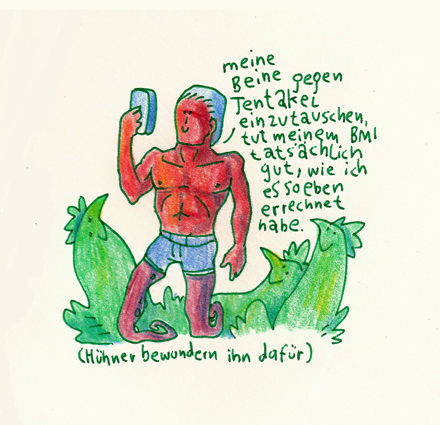 meine
Beine gegen
Tentakel
einzutauschen,
tut meinem BMI
tatsächlich
gut, wie ich
es soeben
errechnet
habe.
(Hühner bewundern ihn dafür)